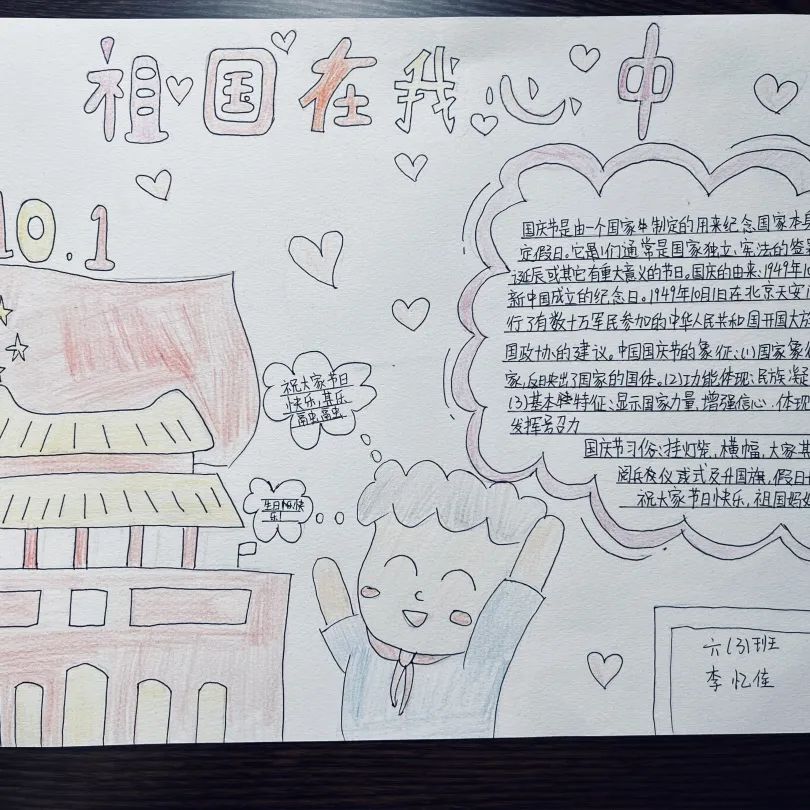 祖国在我心中
10.1
国庆节是由一个国家制定的用来纪念国家本身
定假日。它们通常是国家独立、宪法的签
诞辰或其它有重大意义的节日。国庆的由来:1949年10
新中国成立的纪念日。1949年10月1日在北京天安门
行了有数十万军民参加的中华人民共和国开国大
国政协的建议。中国国庆节的象征:(1)国家象征
家,反映出了国家的国体。(2)功能体现:民族凝
(3)基本特征:显示国家力量,增强信心,体现
发挥号召力
国庆节习俗:挂灯笼,横幅,大家
阅兵庆仪式及升国旗,假日
祝大家节日快乐,祖国
祝大家节日
快乐,其乐
融融
生日快
乐!
六(3)班
李忆佳